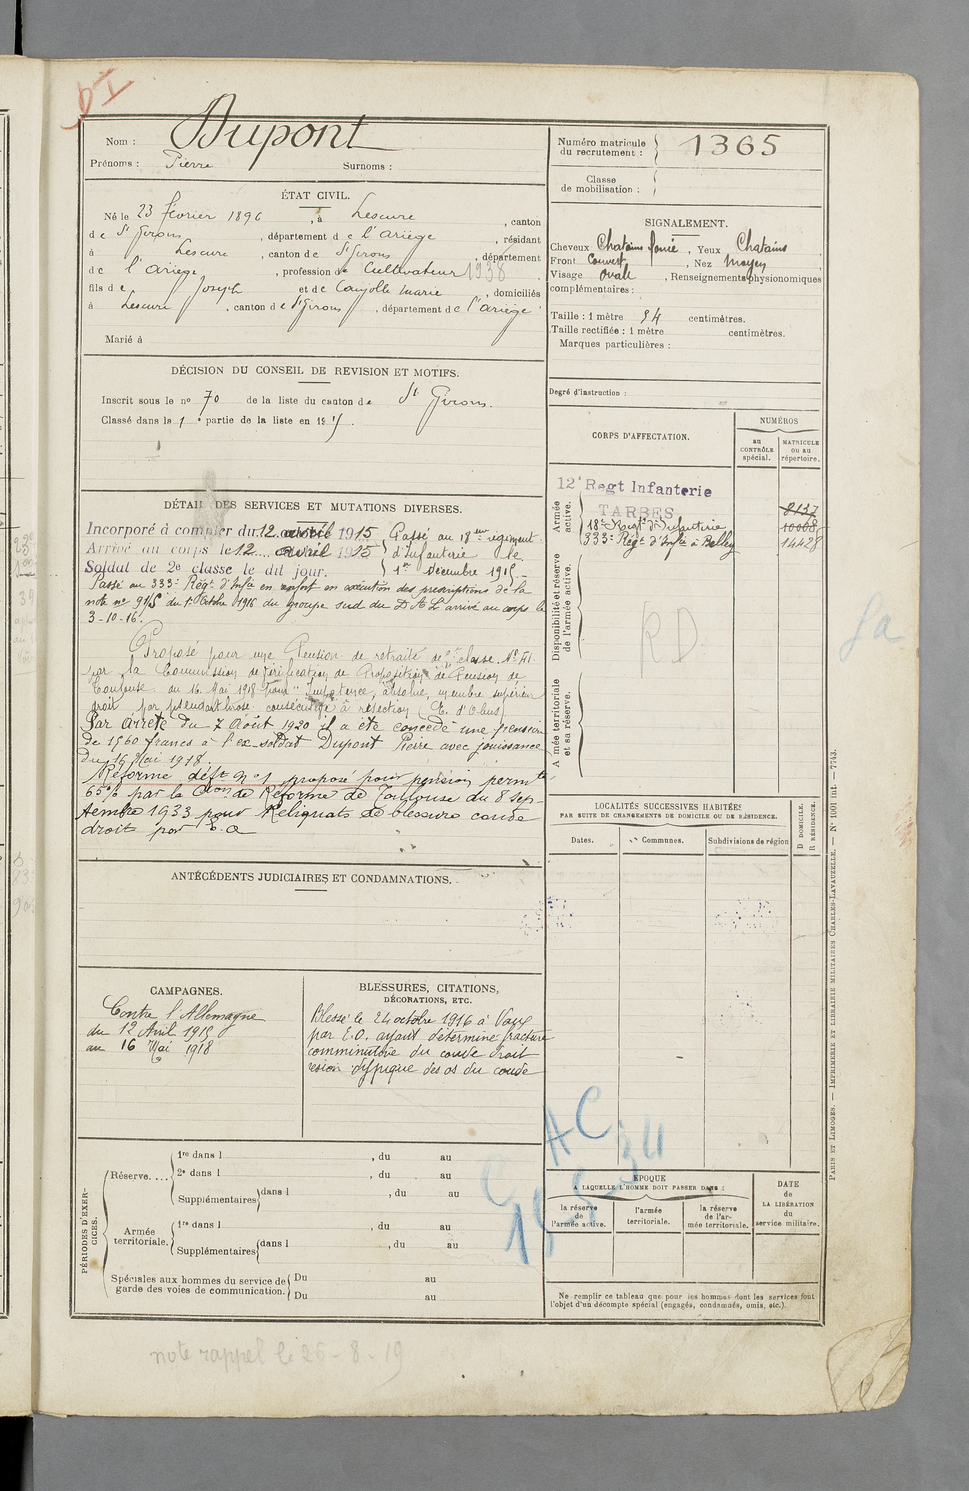 Nom : Dupont
Prénoms : Pierre Surnoms :
Numéro matricule du recrutement : 1365
Classe de mobilisation :
ÉTAT CIVIL.
Né le 23 février 1896, à Lescure, canton
de St Girons, département de l'Ariège, résidant
à Lescure, canton de St Girons, département
de l'Ariège, profession de Cultivateur 1938
fils de Joseph et de Marie, domiciliés
à Lescure, canton de St Girons, département de l'Ariège
Marié à
SIGNALEMENT.
Cheveux Chatains foncé, Yeux Chatains
Front Couvert, Nez Moyen
Visage ovale, Renseignements physionomiques
complémentaires :
Taille : 1 mètre 54 centimètres.
Taille rectifiée : 1 mètre centimètres.
Marques particulières :
Degré d'instruction :
DÉCISION DU CONSEIL DE REVISION ET MOTIFS.
Inscrit sous le no 70 de la liste du canton de St Girons.
Classé dans la 1e partie de la liste en 19
CORPS D'AFFECTATION.
NUMÉROS
au CONTRÔLE spécial.
MATRICULE OU AU répertoire.
Armée active.
12e Regt Infanterie
TARBES 8137
18e Regt d'Infanterie 10008
333e Rég. d'Infie à Belley 14428
Disponibilité et réserve de l'armée active.
RD
Armée territoriale et sa réserve.
DÉTAIL DES SERVICES ET MUTATIONS DIVERSES.
Incorporé à compter du 12 avril 1915 Passé au 18eme régiment
Arrivé au corps le 12 avril 1915 d'Infanterie le
Soldat de 2e classe le dit jour. 1er Décembre 1915
Passé au 333e Régt d'Infie en renfort en exécution des prescriptions de la
note no 91/S du 1er Octobre 1916 du groupe sud du D.A.L. arrivé au corps le
3-10-16.
Proposé pour une Pension de retraite de classe No 41
par la Commission de vérification de Proposition de Pension de
Toulouse du 16 Mai 1918 Pour "Impotence, absolue, membre supérieur
droit par pseudarthrose consécutive à résection (E. d'Obus)
Par arrêté du 7 Août 1920 il a été concédé une pension
de 1560 francs à l'ex-soldat Dupont Pierre avec jouissance
du 16 Mai 1918.
Réformé déft no 1 proposé pour pension permte
65% par la Con de Réforme de Toulouse du 8 sep-
tembre 1933 pour Reliquats de blessure coude
droit par
LOCALITÉS SUCCESSIVES HABITÉES
PAR SUITE DE CHANGEMENTS DE DOMICILE OU DE RÉSIDENCE.
Dates. Communes. Subdivisions de région
D DOMICILE. R RÉSIDENCE.
ANTÉCÉDENTS JUDICIAIRES ET CONDAMNATIONS.
CAMPAGNES.
Contre l'Allemagne
du 12 Avril 1915
au 16 Mai 1918
BLESSURES, CITATIONS,
DÉCORATIONS, ETC.
Blessé le 24 octobre 1916 à Vaux
par E.O. ayant déterminé fracture
comminutive du coude droit
des os du coude
PÉRIODES D'EXERCICES.
Réserve....
1re dans l , du au
2e dans l , du au
Supplémentaires dans l , du au
Armée territoriale.
1re dans l , du au
Supplémentaires dans l , du au
Spéciales aux hommes du service de garde des voies de communication.
Du au
Du au
ÉPOQUE
A LAQUELLE L'HOMME DOIT PASSER DANS :
la réserve de l'armée active.
l'armée territoriale.
la réserve de l'armée territoriale.
DATE de LA LIBÉRATION du service militaire.
Ne remplir ce tableau que pour les hommes dont les services font
l'objet d'un décompte spécial (engagés, condamnés, omis, etc.).
PARIS ET LIMOGES. — IMPRIMERIE ET LIBRAIRIE MILITAIRES CHARLES-LAVAUZELLE. — No 1001 int. — 7743.
note rappel le 26-8-19